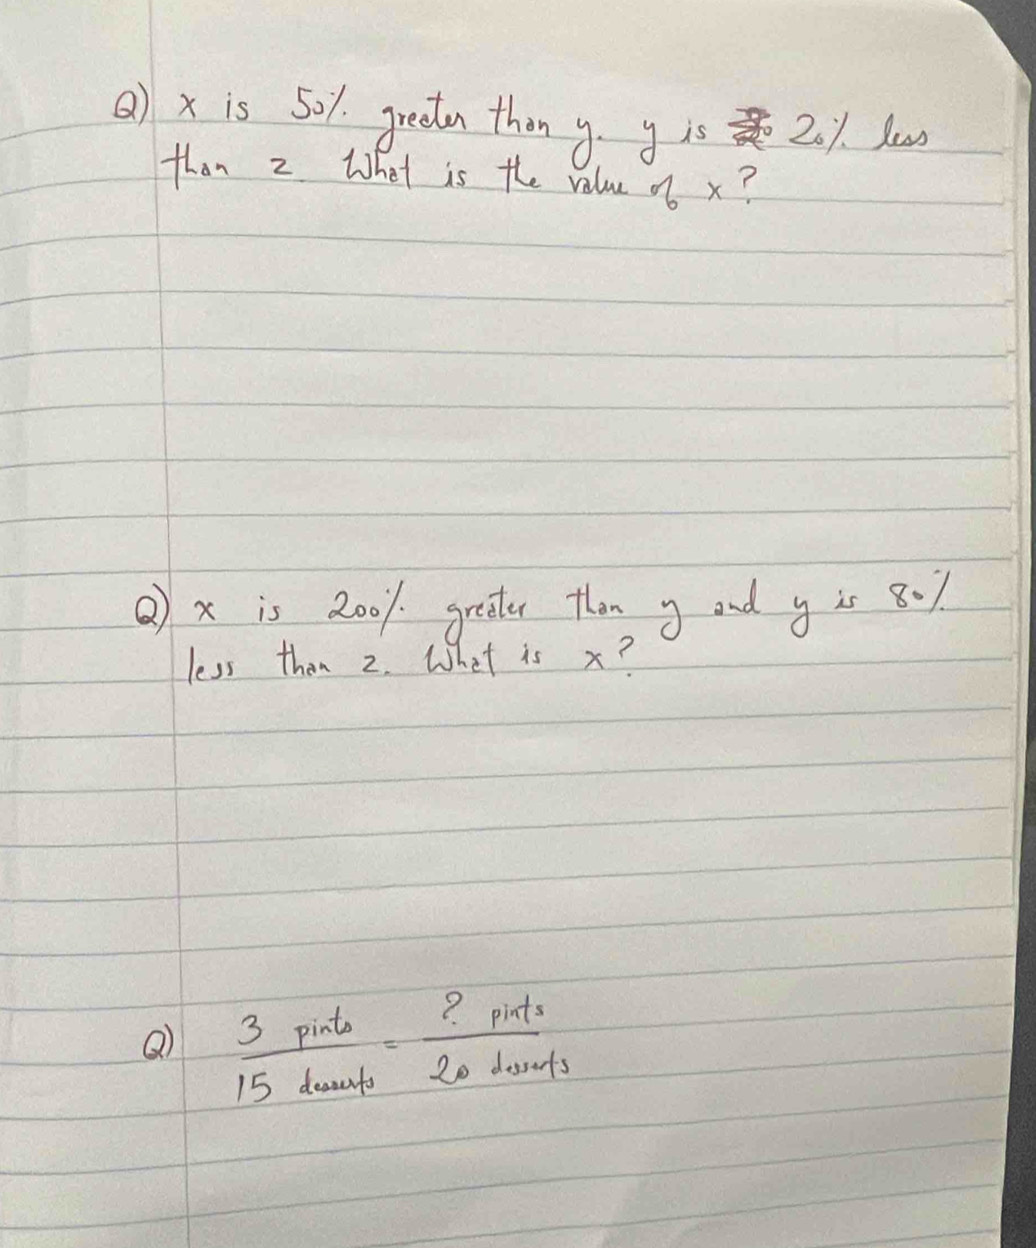 Q) x is 50% greater than y. y is 20% less
than z. What is the value of x?
Q) x is 200% greater than y and y is 80%
less than z. What is x?
Q) 3 pints / 15 desserts = ? pints / 20 desserts